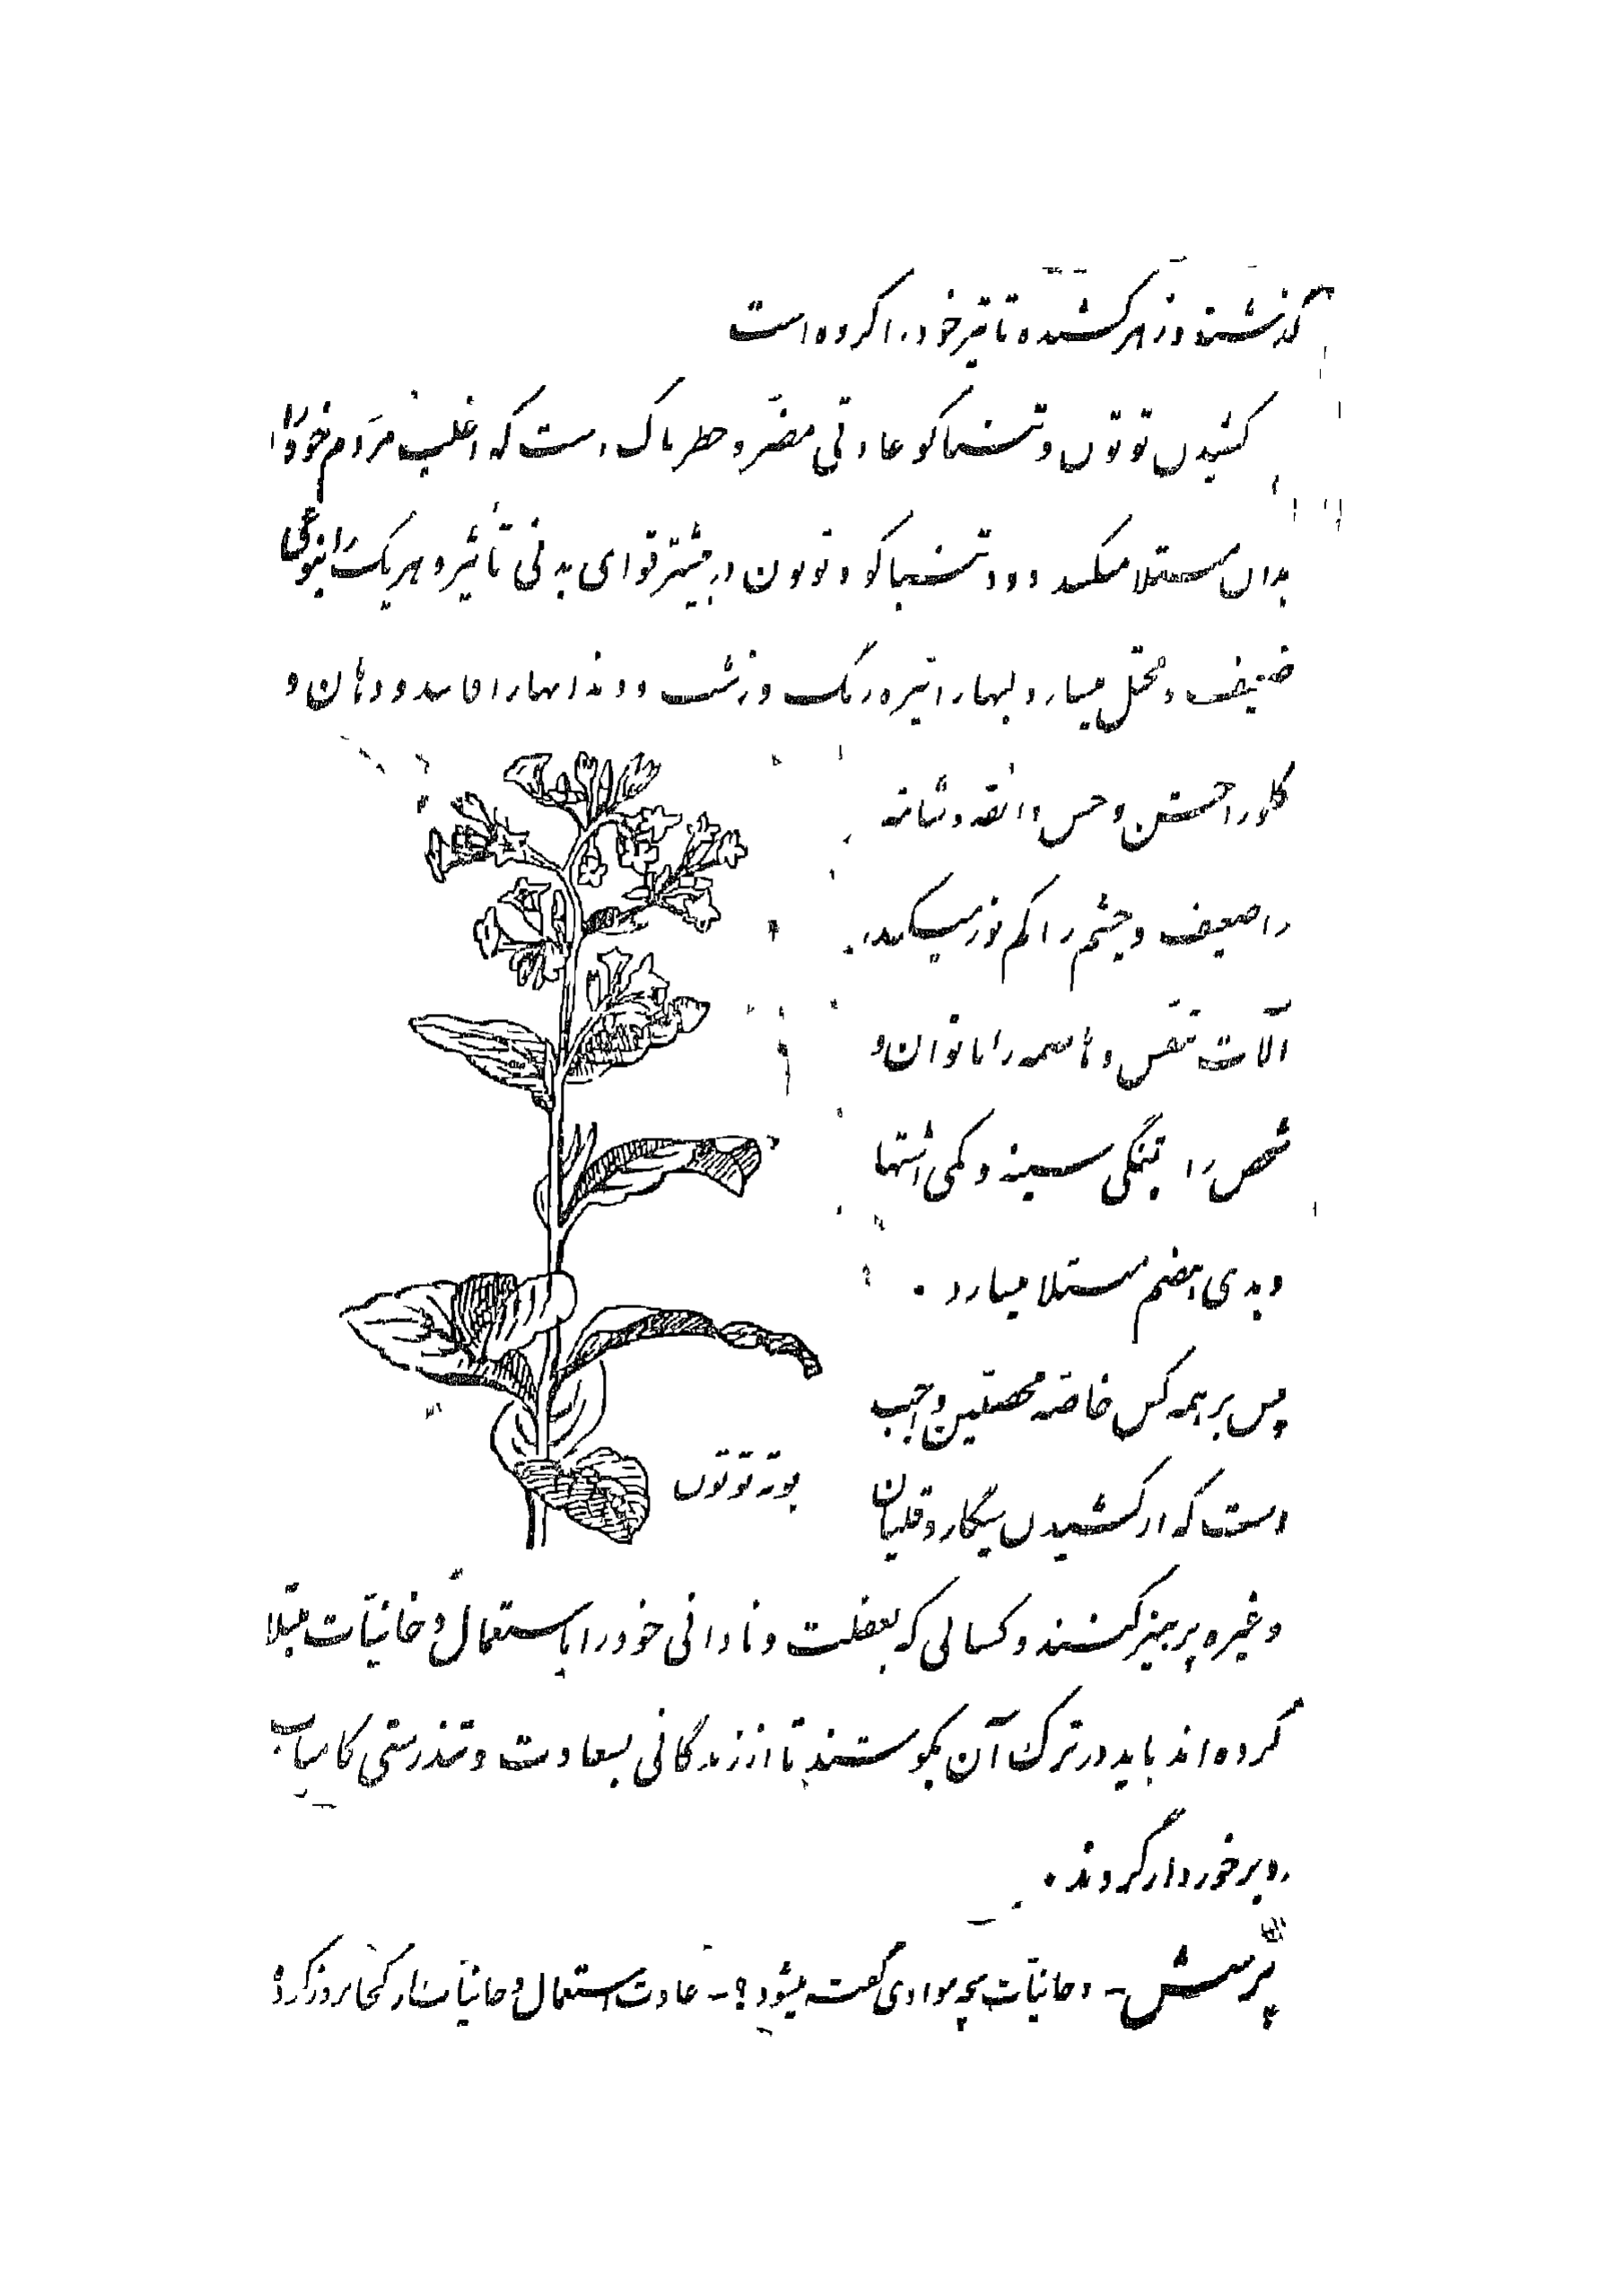 گذشته و زهر کشنده تأثیر خود را کرده است
کشیدن توتون و تنباکو عادتی مضرّ و خطرناک است که اغلب مردم خود را
بدان مبتلا میکنند دود تنباکو و توتون در بیشتر قوای بدنی تأثیر و هر یک را بنوعی
ضعیف و مختل میسازد لبها را تیره رنگ و زشت و دندانها را فاسد و دهان و
گلو را خشن و حس ذائقه و شامّه
را ضعیف و چشم را کم نور میکند،
آلات تنفس و هاضمه را ناتوان و
شخص را بتنگی سینه و کمی اشتها
و بدی هضم مبتلا میسازد .
پس بر همه کس خاصّه محصّلین واجب
است که از کشیدن سیگار و قلیان
بوته توتون
و غیره پرهیز کنند و کسانی که بغفلت و نادانی خود را باستعمال دخانیّات مبتلا
کرده اند باید در ترک آن بکوشند تا از زندگانی بسعادت و تندرستی کامیاب
و برخوردار گردند .
پرسش - دخانیّات بچه موادی گفته میشود ؟ - عادت استعمال دخانیّات از کجا بروز کرده